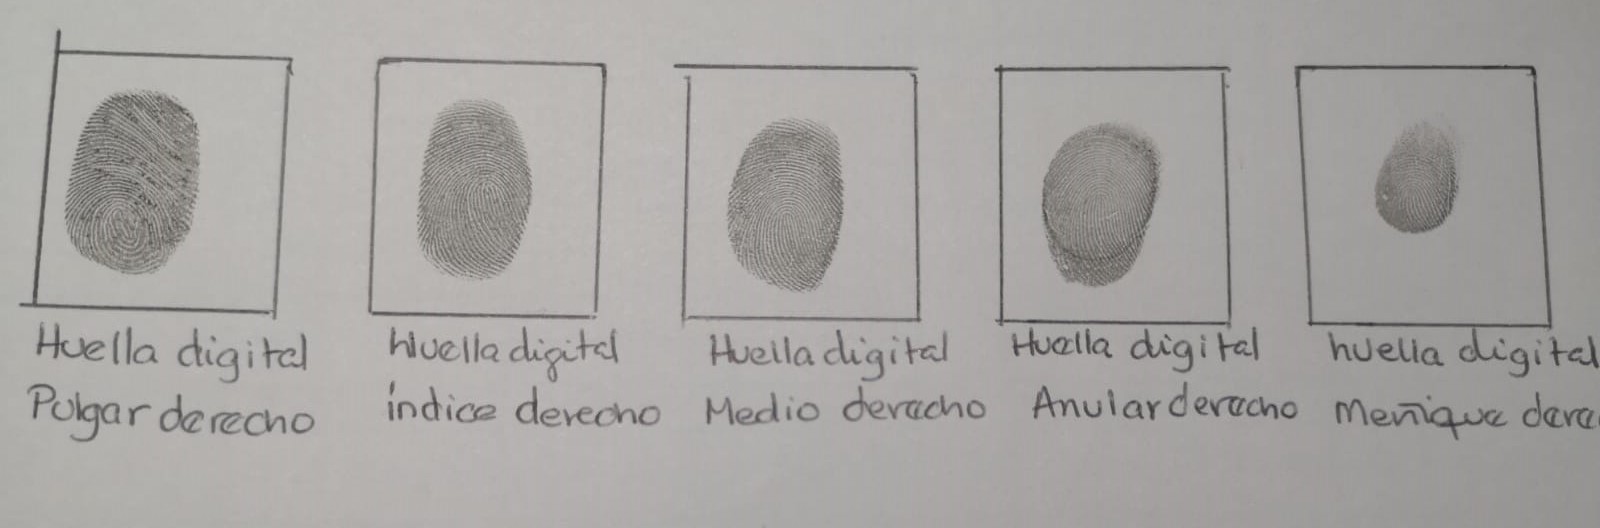 Huella digital
Pulgar derecho
huella digital
índice derecho
Huella digital
Medio derecho
Huella digital
Anular derecho
huella digital
Meñique dere